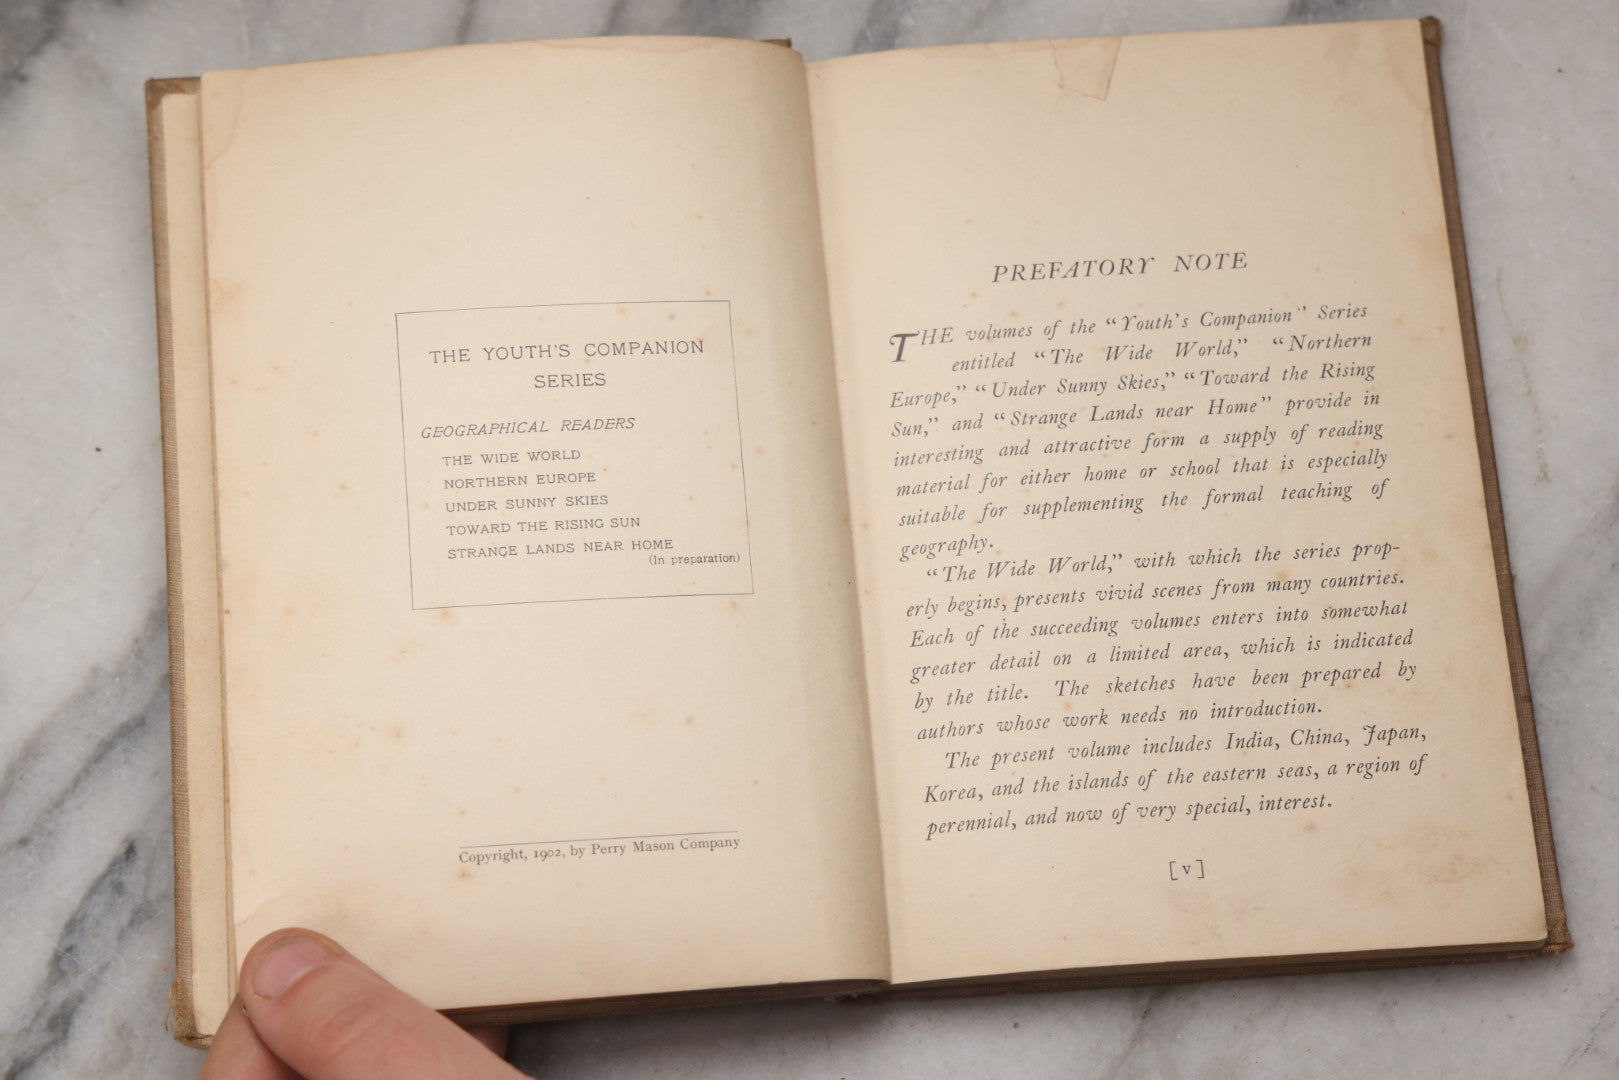 THE YOUTH'S COMPANION
SERIES
GEOGRAPHICAL READERS
THE WIDE WORLD
NORTHERN EUROPE
UNDER SUNNY SKIES
TOWARD THE RISING SUN
STRANGE LANDS NEAR HOME
(In preparation)
Copyright, 1902, by Perry Mason Company
PREFATORY NOTE
THE volumes of the “Youth's Companion” Series
entitled “The Wide World,” “Northern
Europe,” “Under Sunny Skies,” “Toward the Rising
Sun,” and “Strange Lands near Home” provide in
interesting and attractive form a supply of reading
material for either home or school that is especially
suitable for supplementing the formal teaching of
geography.
“The Wide World,” with which the series prop-
erly begins, presents vivid scenes from many countries.
Each of the succeeding volumes enters into somewhat
greater detail on a limited area, which is indicated
by the title. The sketches have been prepared by
authors whose work needs no introduction.
The present volume includes India, China, Japan,
Korea, and the islands of the eastern seas, a region of
perennial, and now of very special, interest.
[v]